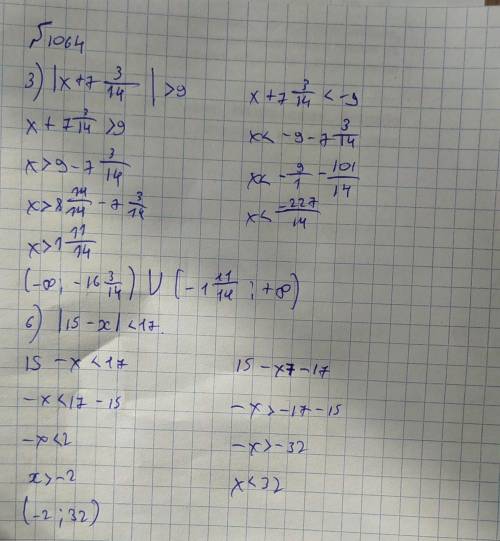 №1064
3) |x+7 3/14| >9
x+7 3/14 >9
x>9-7 3/14
x>8 14/14 -7 3/14
x>1 11/14
x+7 3/14 <-9
x< -9-7 3/14
x< -9/1 -101/14
x< -227/14
(-∞; -16 3/14) ∪ (-1 11/14 ; +∞)
6) |15-x|<17.
15-x<17
-x<17-15
-x<2
x>-2
15-x>-17
-x>-17-15
-x>-32
x<32
(-2;32)